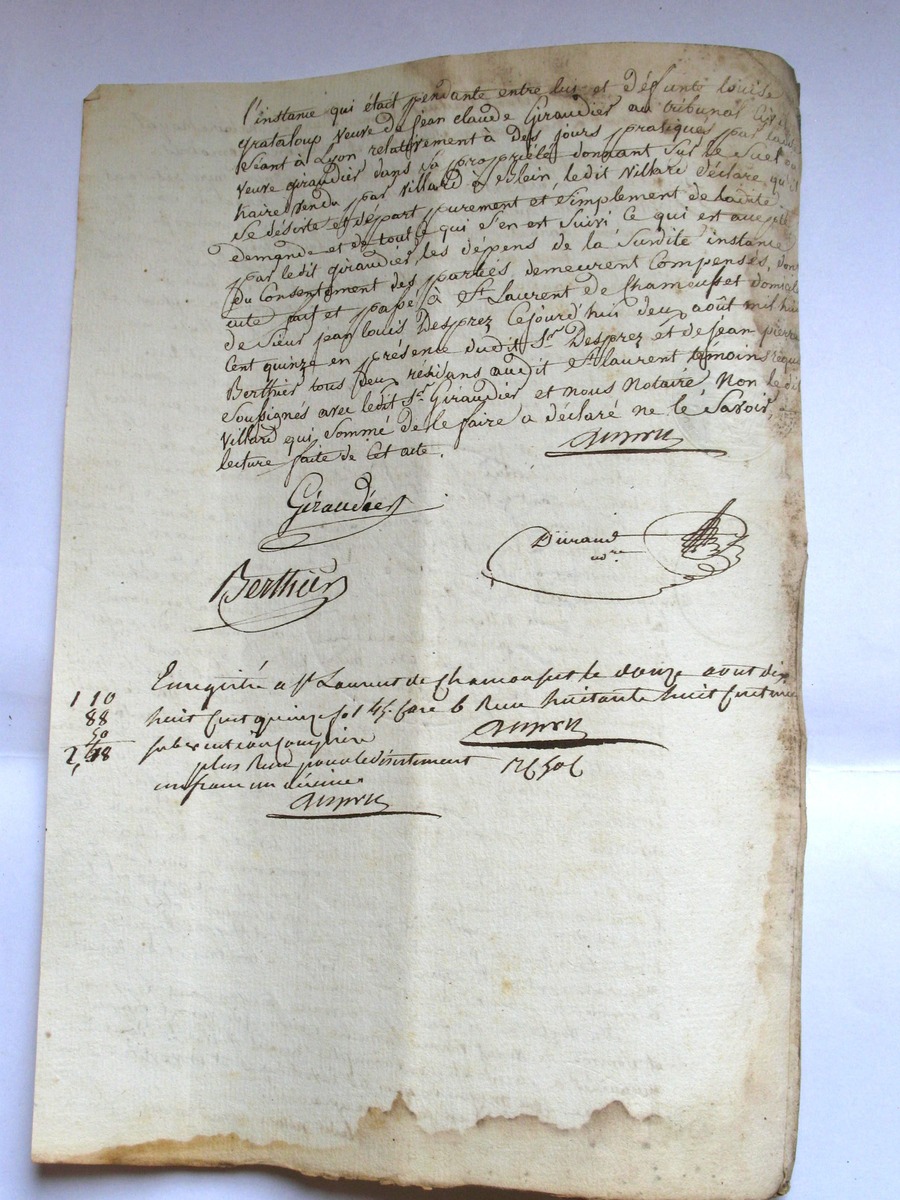 l'instance qui était pendante entre lui et défunte louise
grataloup veuve de jean claude Giraudier au tribunal
séant à Lyon relativement à des jours pratiqués par
veuve giraudier dans sa propriété donnant sur le
vendu par villard à ledit villard déclare qu'il
se désiste et départ purement et simplement de ladite
demande et de tout ce qui s'en est suivi ce qui est
par ledit giraudier les dépens de la susdite instance
du Consentement des parties demeurent compensés, dont
acte fait et passé à St Laurent de Chamousset domicile
de sieur jean louis Desprez Cejourd'huy deux août mil huit
Cent quinze en présence dudit Sr Desprez et de jean pierre
Berthier tous deux résidans audit St laurent témoins requis
soussignés avec ledit sr Giraudier et nous Notaire Non ledit
villard qui sommé de le faire a déclaré ne le savoir
lecture faite de Cet acte.
Giraudier
Durand
nore
Berthier
Enregistré a St Laurent de Chamousset le douze aout dix
1 10
huit cent quinze fo 145 case 6 Recu huitante huit centimes
88
50
subvention comprise
2,48
plus Recu pour le désistement
un franc un décime